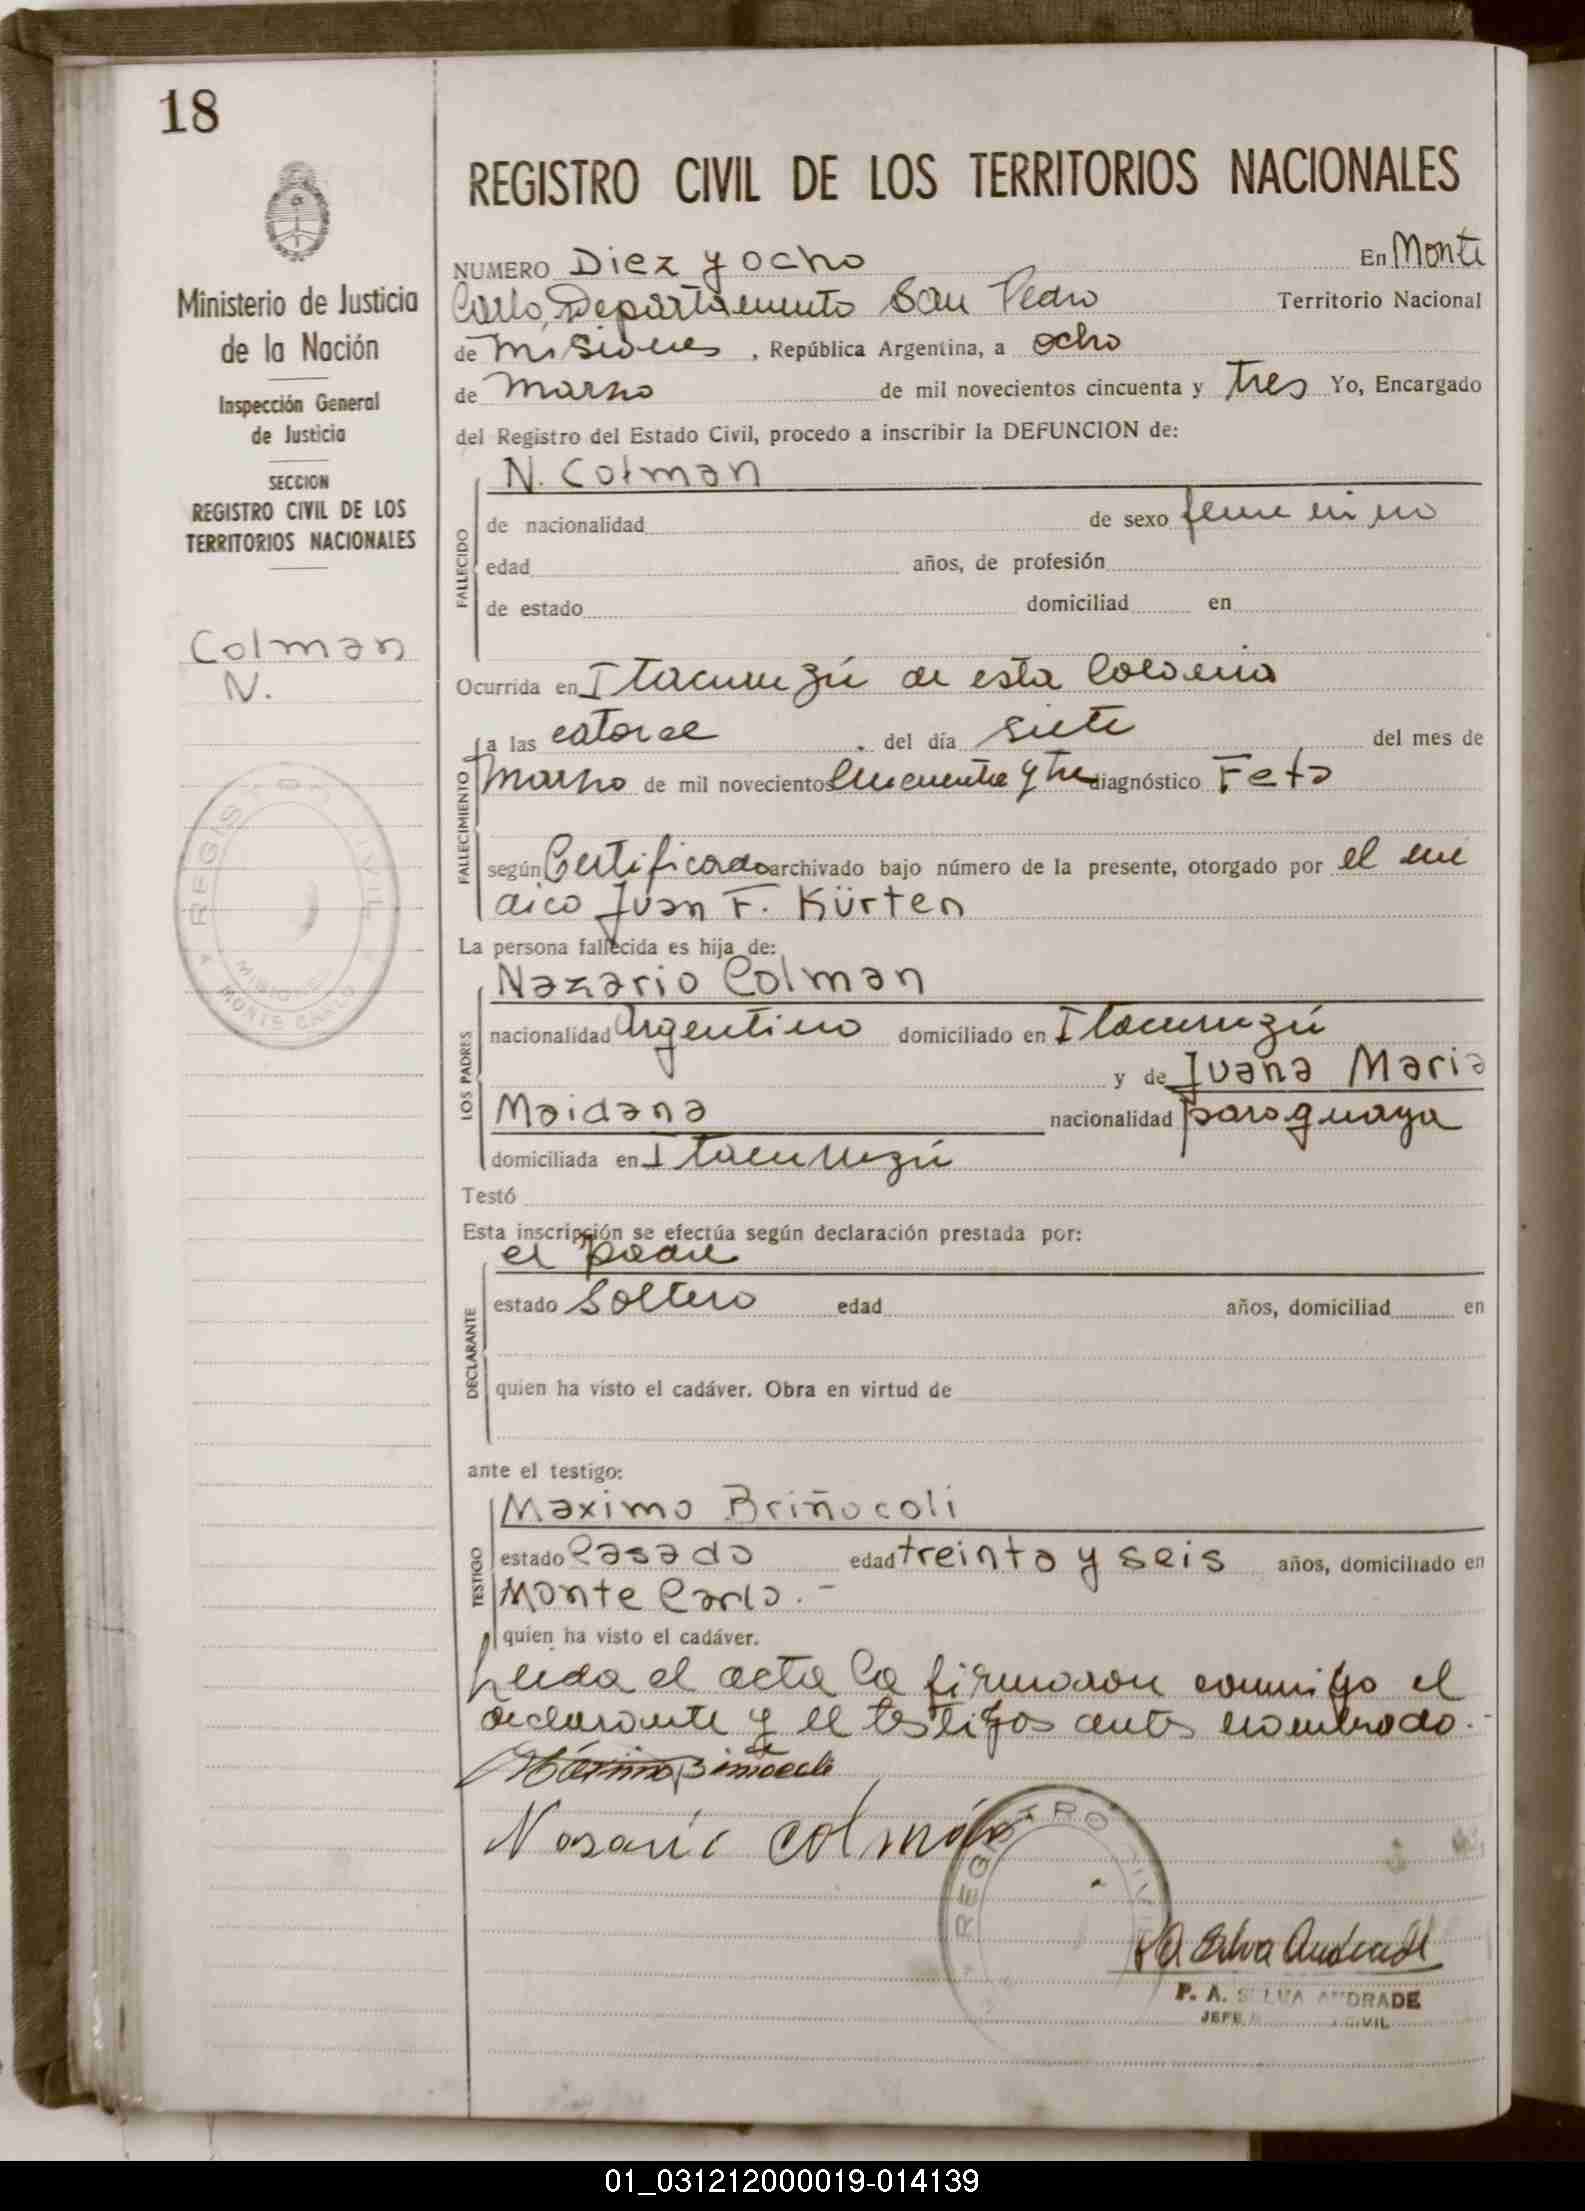 18
Ministerio de Justicia
de la Nación
Inspección General
de Justicia
SECCION
REGISTRO CIVIL DE LOS
TERRITORIOS NACIONALES
Colman
N.
REGISTRO CIVIL
MISIONES
MONTE CARLO
REGISTRO CIVIL DE LOS TERRITORIOS NACIONALES
NUMERO Diez y ocho En Monte
Carlo, Departamento San Pedro Territorio Nacional
de Misiones, República Argentina, a ocho
de Marzo de mil novecientos cincuenta y tres Yo, Encargado
del Registro del Estado Civil, procedo a inscribir la DEFUNCION de:
FALLECIDO
N. Colman
de nacionalidad de sexo femenino
edad años, de profesión
de estado domiciliad en
Ocurrida en Itacuruzú de esta Colonia
FALLECIMIENTO
a las catorce del día siete del mes de
Marzo de mil novecientos cincuenta y tres diagnóstico Feto
según Certificado archivado bajo número de la presente, otorgado por el mé
dico Juan F. Kürten
La persona fallecida es hija de:
LOS PADRES
Nazario Colman
nacionalidad Argentino domiciliado en Itacuruzú
y de Juana Maria
Maidana nacionalidad paraguaya
domiciliada en Itacuruzú
Testó
Esta inscripción se efectúa según declaración prestada por:
DECLARANTE
el padre
estado Soltero edad años, domiciliad en
quien ha visto el cadáver. Obra en virtud de
ante el testigo:
TESTIGO
Maximo Briñocoli
estado Casado edad treinta y seis años, domiciliado en
Monte Carlo.-
quien ha visto el cadáver.
Leida el acta la firmaron conmigo el
declarante y el testigos antes nombrado.-
Máximo Briñocoli
Nasario Colmán
REGISTRO CIVIL
P A Silva Andrade
P. A. SILVA ANDRADE
JEFE CIVIL
01_031212000019-014139